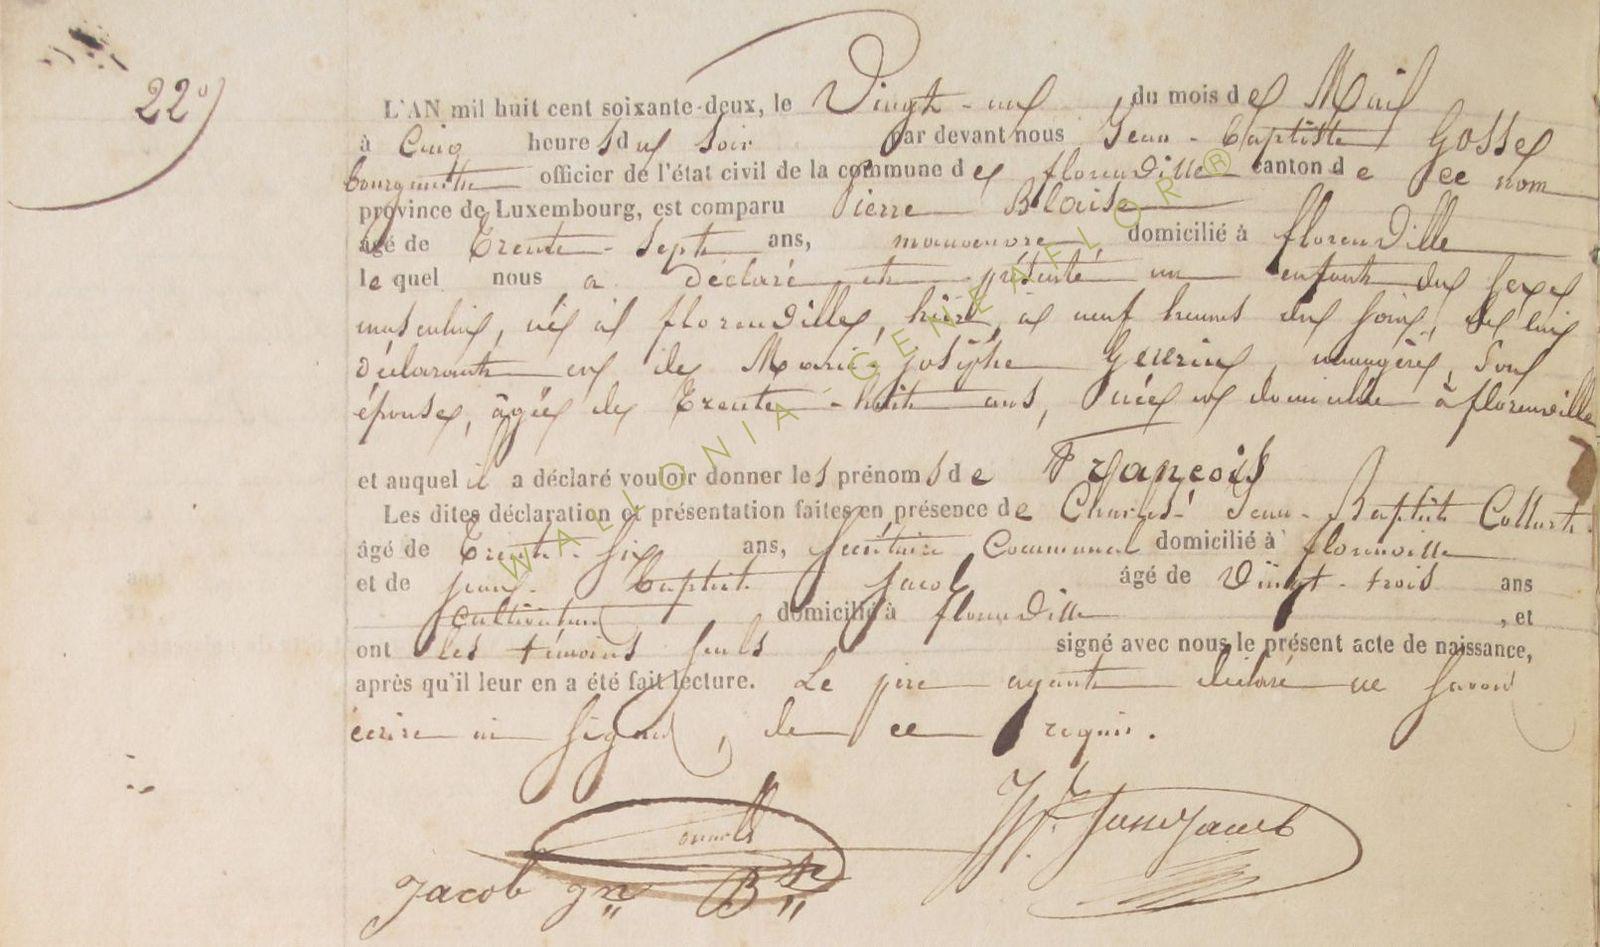 22
L'AN mil huit cent soixante-deux, le Vingt-un du mois de Mai
à Cinq heures du soir par devant nous Jean-Baptiste Gosse
bourgmestre officier de l'état civil de la commune de florenville canton de ce nom
province de Luxembourg, est comparu Pierre Blaise
âgé de Trente-sept ans, manœuvre domicilié à florenville
lequel nous a déclaré et présenté un enfant du sexe
masculin, né à florenville, hier, à neuf heures du soir, de lui
déclarant et de Marie-Josèphe Guerin, ménagère, son
épouse, âgée de Trente-huit ans, née et domiciliée à florenville
et auquel il a déclaré vouloir donner les prénoms de François
Les dites déclaration et présentation faites en présence de Charles Jean-Baptiste Collart
âgé de Trente-six ans, secrétaire Communal domicilié à florenville
et de jean-Baptiste Jacob âgé de Vingt-trois ans
cultivateur domicilié à florenville, et
ont les témoins seuls signé avec nous le présent acte de naissance,
après qu'il leur en a été fait lecture. Le père ayant déclaré ne savoir
écrire ni signer, de ce requis.
Jacob Jn Bte
WALLONIA - GENEAFLOR ®